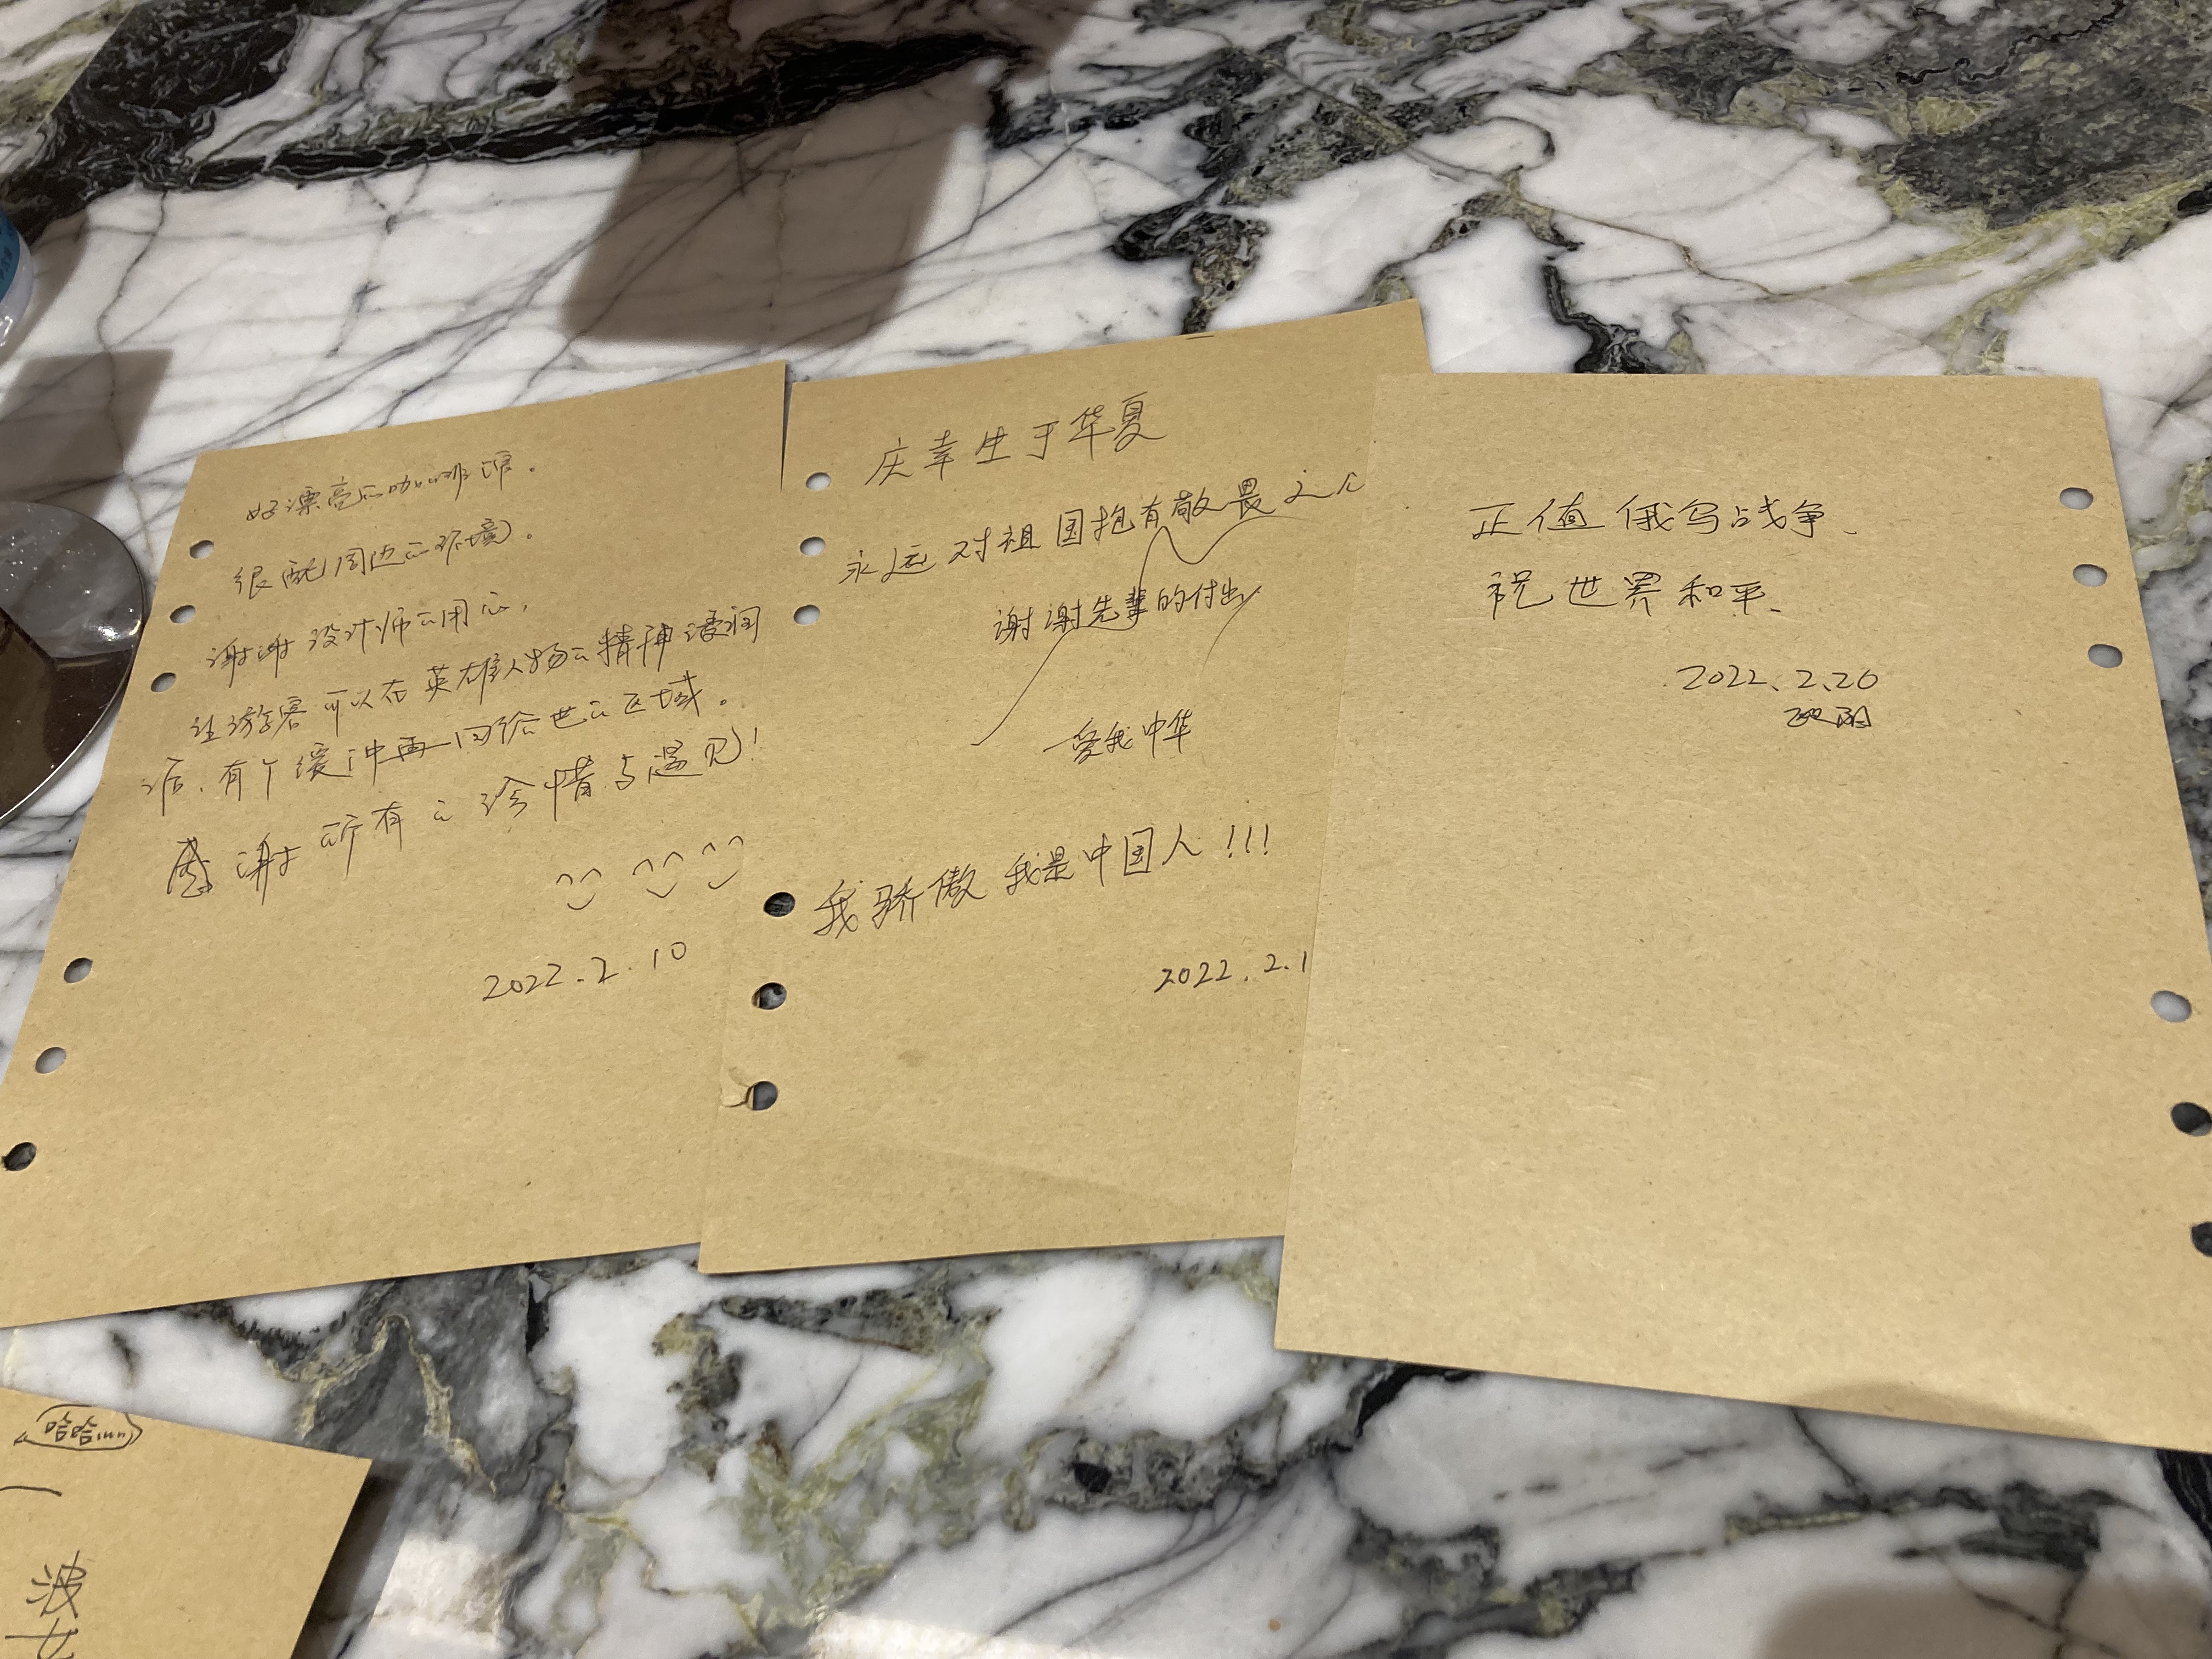 好漂亮的咖啡馆。
很配周边的环境。
谢谢设计师的用心,
让游客可以在英雄人物的精神浸润
后、有个缓冲再回给世的区域。
感谢所有的冷情与遇见!
2022.2.10
庆幸生于华夏
永远对祖国抱有敬畏之心
谢谢先辈的付出
爱我中华
我骄傲 我是中国人!!!
2022.2.1
正值俄乌战争、
祝世界和平、
2022.2.26
哈哈
波